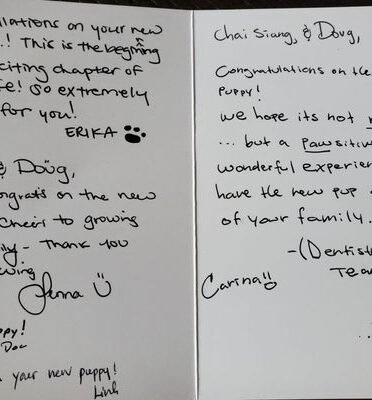 ulations on your new
! This is the beginning
citing chapter of
e! So extremely
for you!
ERIKA
& Doug,
ongrats on the new
Cheers to growing
ily - Thank you
wing
Jenna
ppy!
Doc
your new puppy!
Linh
Chai Siang, & Doug,
Congratulations on the
puppy!
we hope its not
... but a pawsitiv
wonderful experien
have the new pup
of your family.
-(Dentist
Tea
Carina